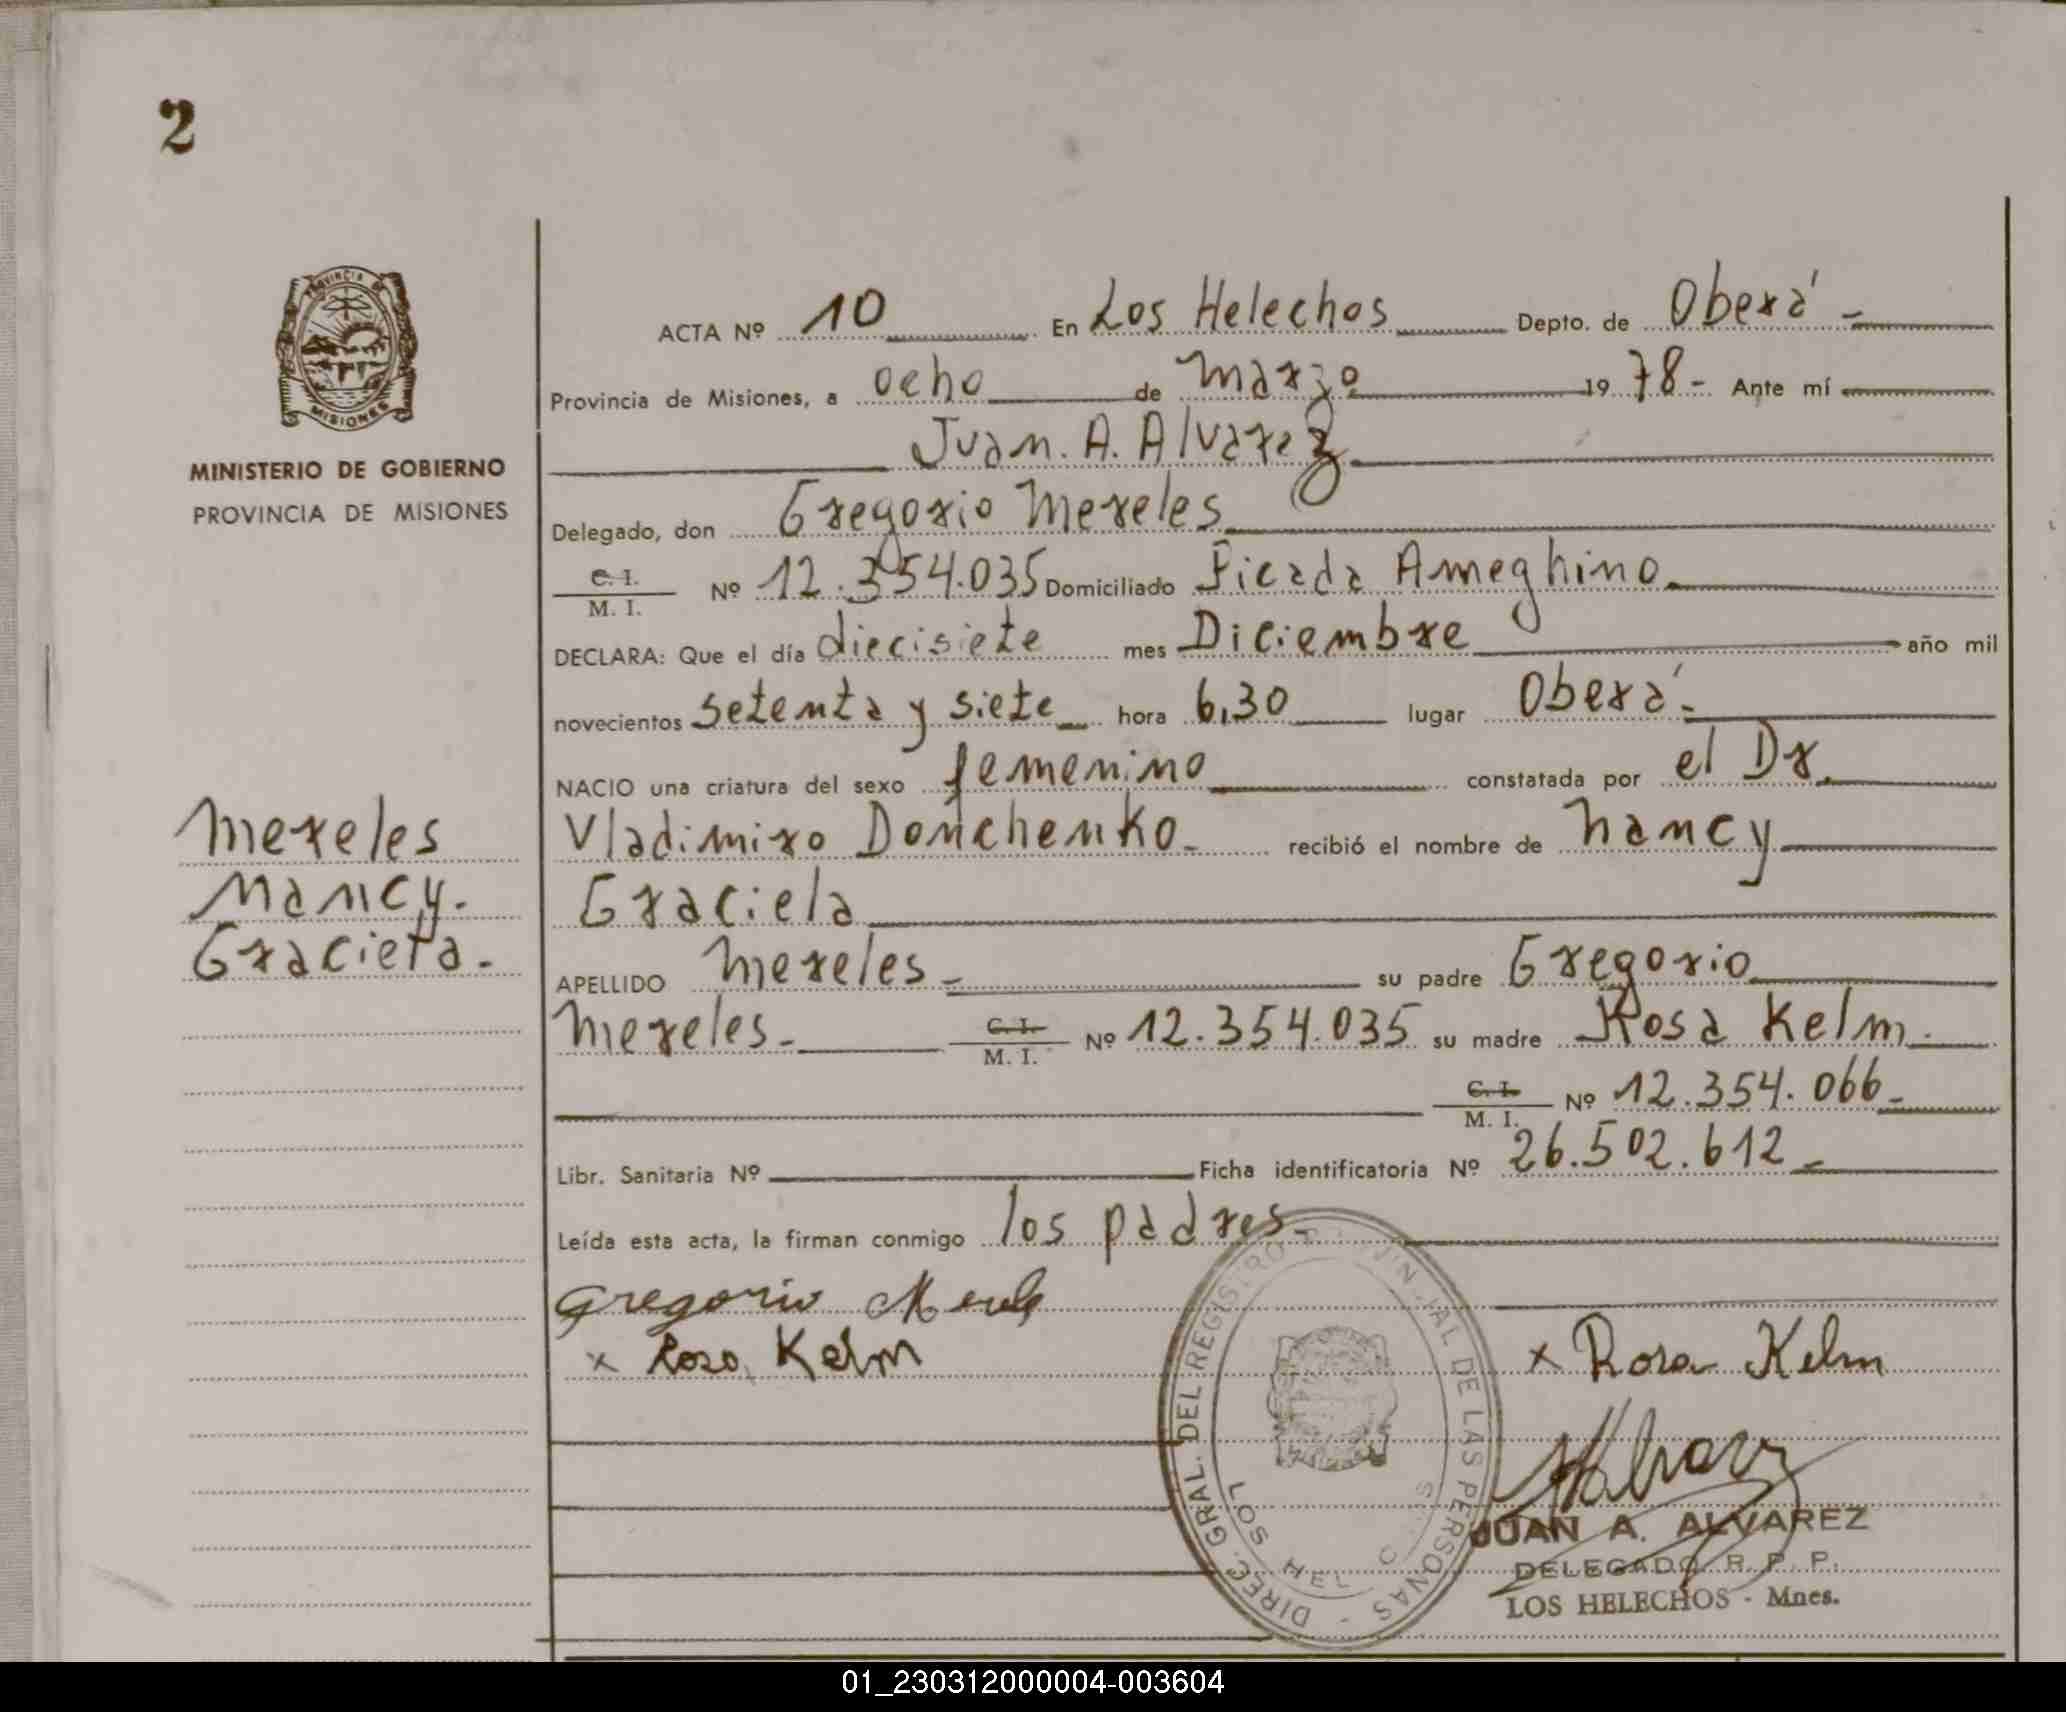 2
PROVINCIA DE
MISIONES
MINISTERIO DE GOBIERNO
PROVINCIA DE MISIONES
Mereles
Nancy.
Graciela.
ACTA Nº 10 En Los Helechos Depto. de Oberá -
Provincia de Misiones, a ocho de Marzo 1978- Ante mí
Juan. A. Alvarez
Delegado, don Gregorio Mereles
C. I.
M. I. Nº 12.354.035 Domiciliado Picada Ameghino.
DECLARA: Que el día diecisiete mes Diciembre año mil
novecientos setenta y siete hora 6,30 lugar Oberá.
NACIO una criatura del sexo femenino constatada por el Dr.
Vladimiro Donchenko. recibió el nombre de Nancy
Graciela
APELLIDO Mereles - su padre Gregorio
Mereles - C. I.
M. I. Nº 12.354.035 su madre Rosa Kelm.
C. I.
M. I. Nº 12.354.066 -
Libr. Sanitaria Nº Ficha identificatoria Nº 26.502.612 -
Leída esta acta, la firman conmigo los padres -
Gregorio Merele
x Rosa Kelm x Rosa Kelm
DIREC. GRAL. DEL REGISTRO PROVINCIAL DE LAS PERSONAS -
LOS HEL C S
JUAN A. ALVAREZ
DELEGADO R. P. P.
LOS HELECHOS - Mnes.
01_230312000004-003604